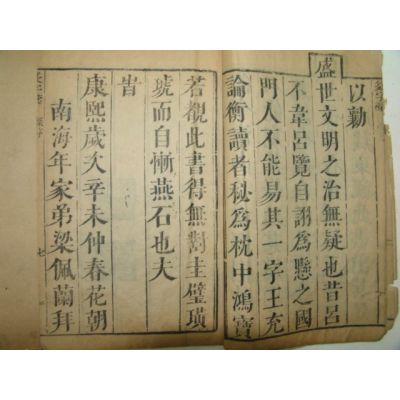 以勷
盛世文明之治無疑也昔呂
不韋呂覽自詡為懸之國
門人不能易其一字王充
論衡讀者秘為枕中鴻寶
若覩此書得無對圭璧璜
琥而自慚燕石也夫
旹
康熙歲次辛未仲春花朝
南海年家弟梁佩蘭拜